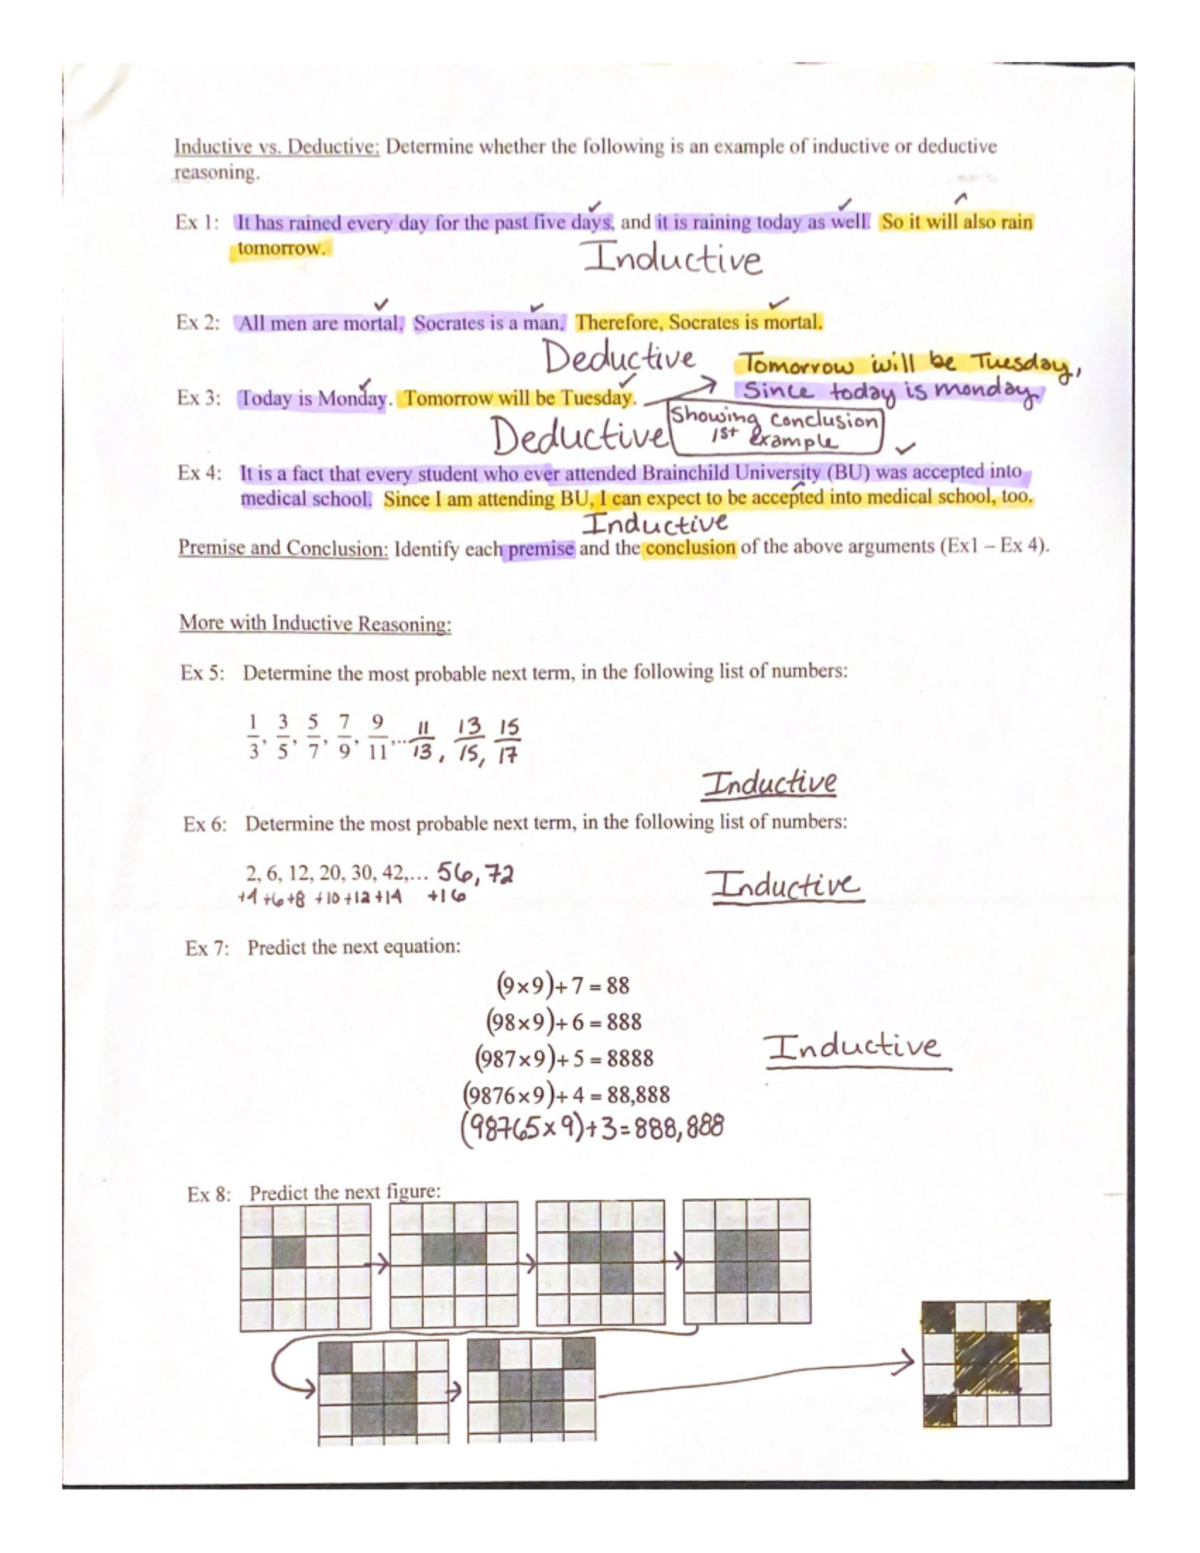 Inductive vs. Deductive: Determine whether the following is an example of inductive or deductive
reasoning.
Ex 1: It has rained every day for the past five days, and it is raining today as well. So it will also rain
tomorrow.
Inductive
Ex 2: All men are mortal. Socrates is a man. Therefore, Socrates is mortal.
Deductive
Tomorrow will be Tuesday,
Since today is monday
Ex 3: Today is Monday. Tomorrow will be Tuesday.
Deductive
Showing conclusion
1st example
Ex 4: It is a fact that every student who ever attended Brainchild University (BU) was accepted into
medical school. Since I am attending BU, I can expect to be accepted into medical school, too.
Inductive
Premise and Conclusion: Identify each premise and the conclusion of the above arguments (Ex1 – Ex 4).
More with Inductive Reasoning:
Ex 5: Determine the most probable next term, in the following list of numbers:
1/3, 3/5, 5/7, 7/9, 9/11,... 11/13, 13/15, 15/17
Inductive
Ex 6: Determine the most probable next term, in the following list of numbers:
2, 6, 12, 20, 30, 42,... 56, 72
+4 +6 +8 +10 +12 +14 +16
Inductive
Ex 7: Predict the next equation:
(9×9)+7 = 88
(98×9)+6 = 888
(987×9)+5 = 8888
Inductive
(9876×9)+4 = 88,888
(98765×9)+3=888,888
Ex 8: Predict the next figure: